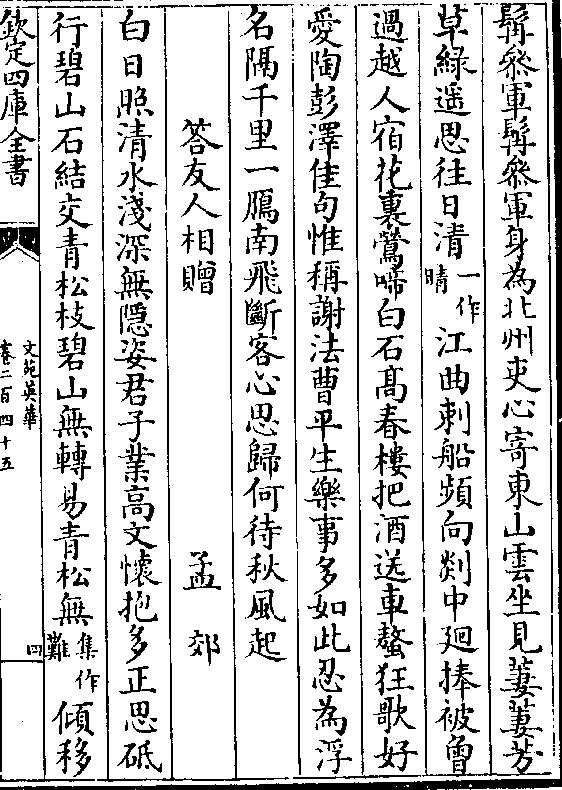 髯參軍髯參軍身為北州吏心寄東山雲坐見萋萋芳
草綠遥思往日清一作晴江曲刺船頻向剡中廻捧被曾
過越人宿花裏鶯啼白石髙春樓把酒送車螯狂歌好
愛陶彭澤佳句惟稱謝法曹平生樂事多如此忍為浮
名隔千里一鴈南飛斷客心思歸何待秋風起
答友人相贈　孟郊
白日照清水淺深無隱姿君子業高文懷抱多正思砥
行碧山石結交青松枝碧山無轉易青松無集作難傾移
欽定四庫全書
文苑英華
卷二百四十五
四